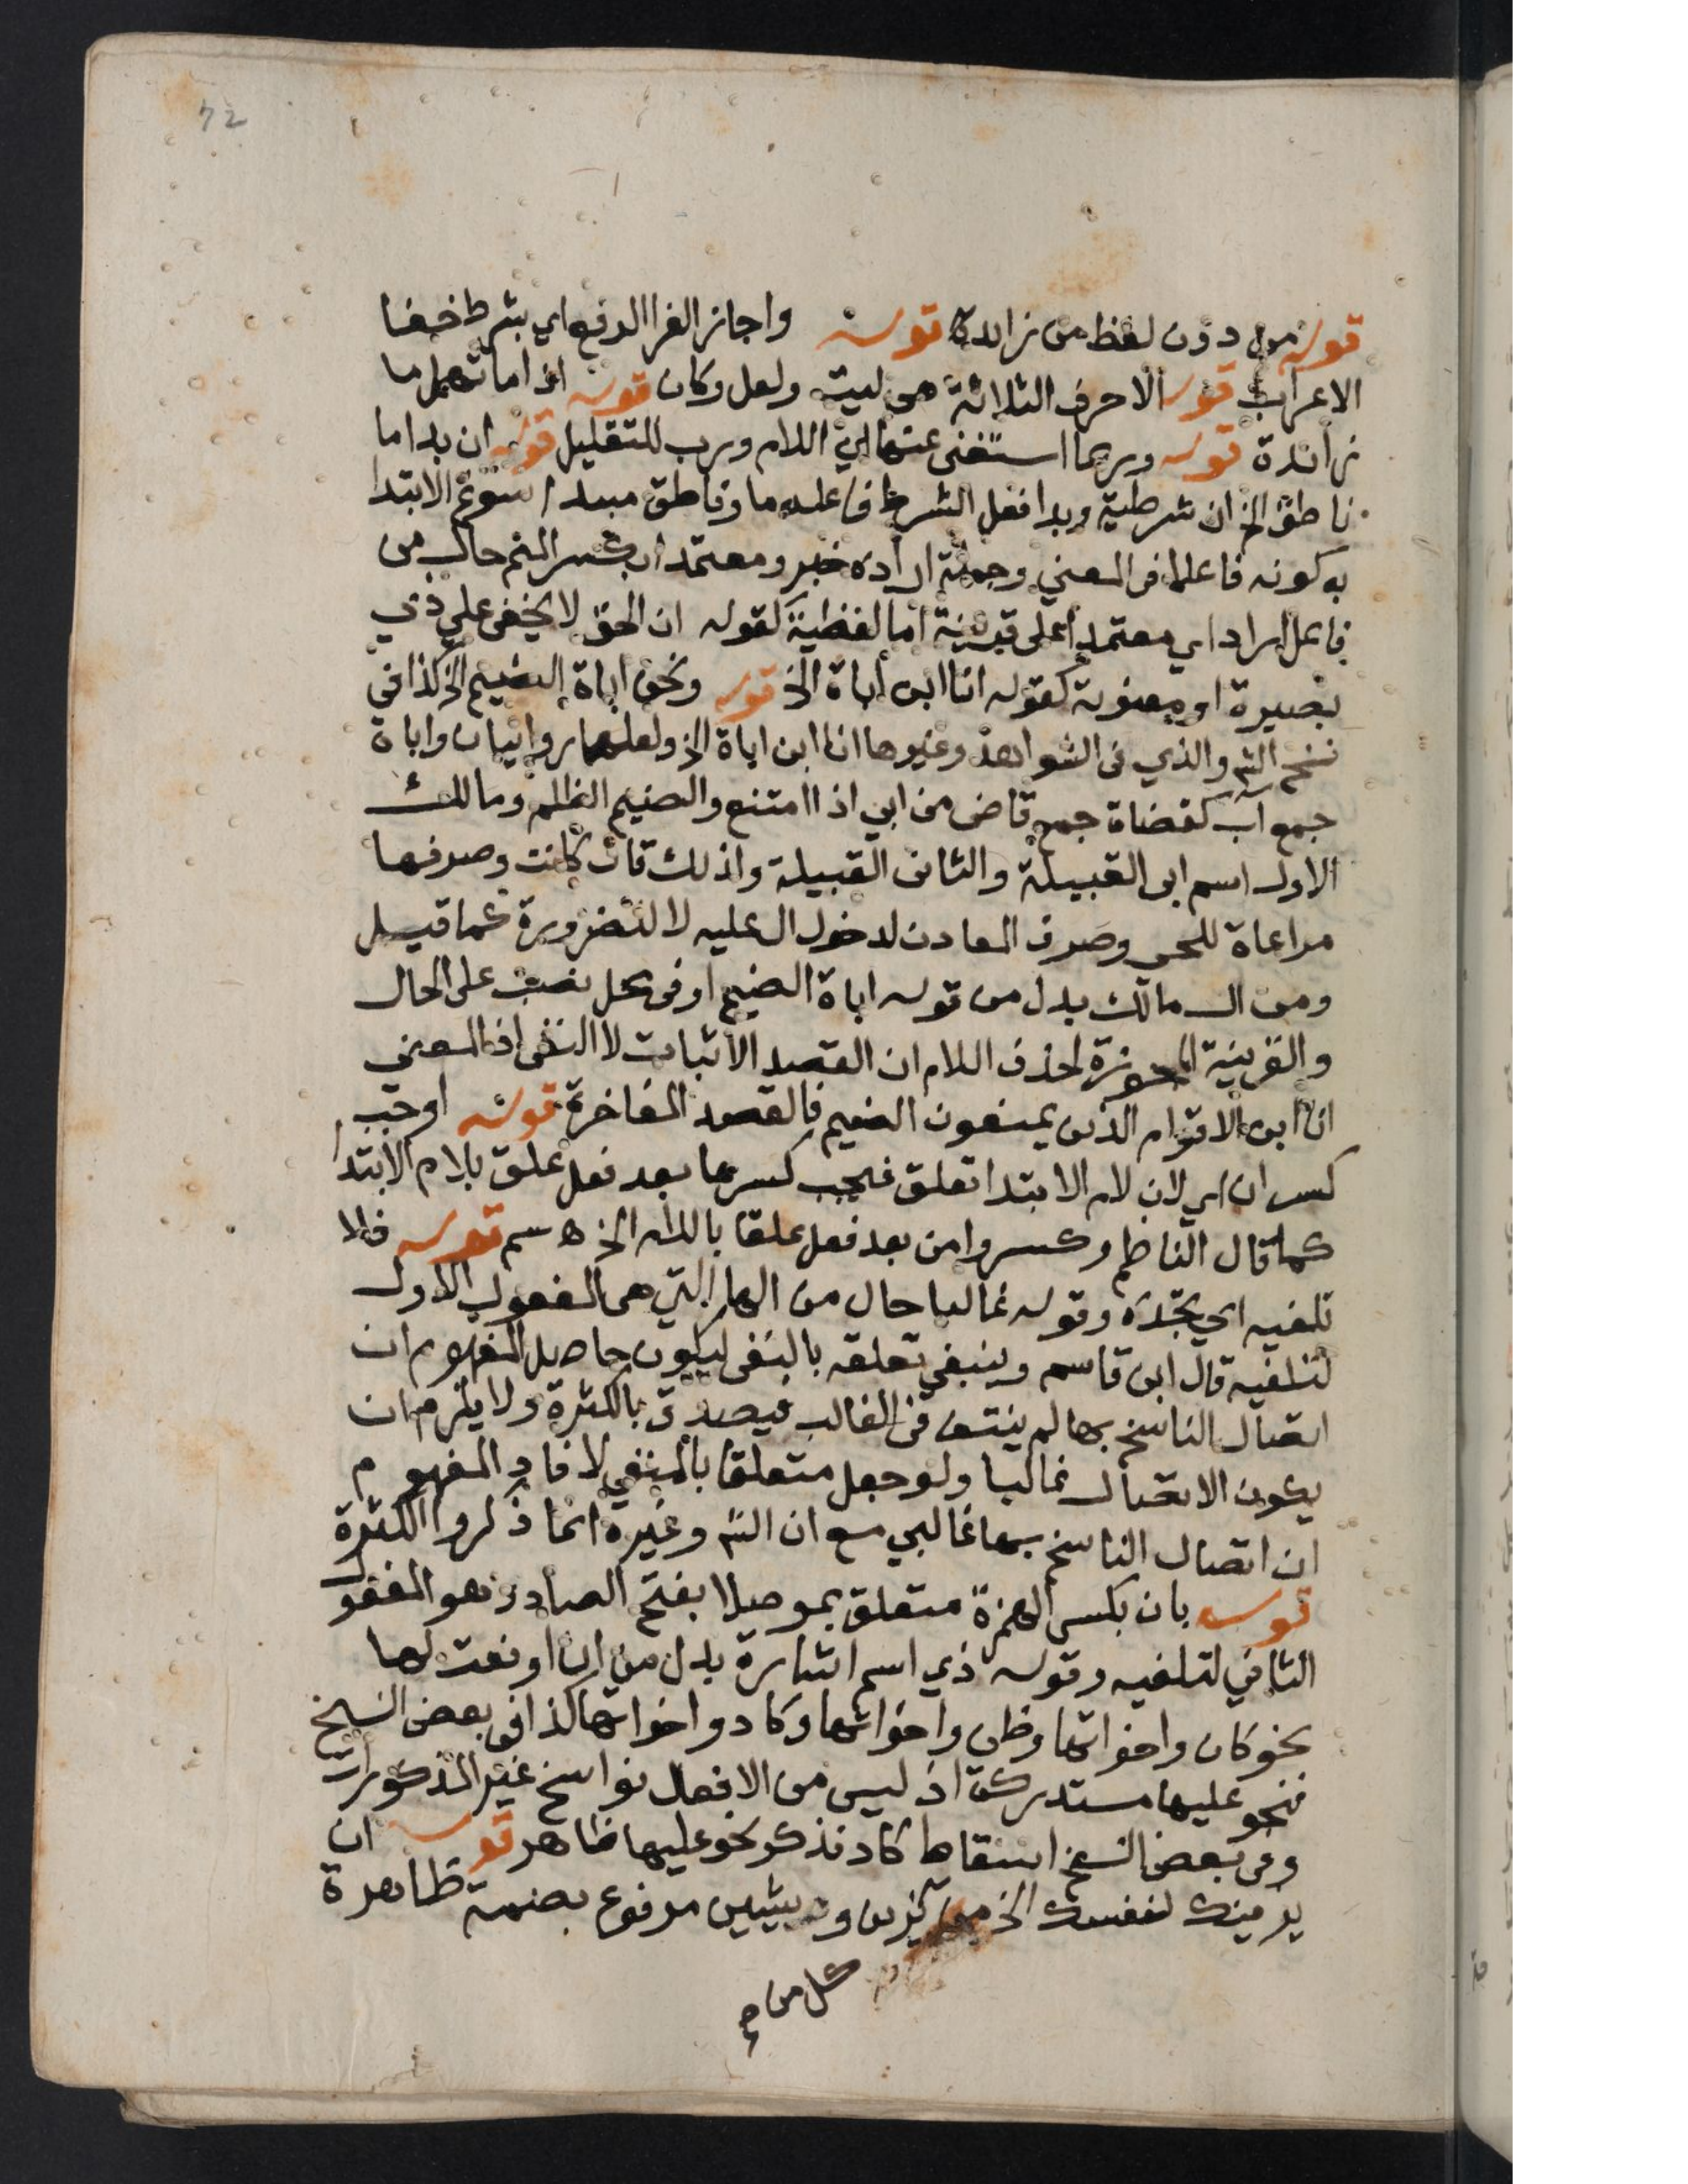 72
قوله من دون لفظ من زائدة قوله واجاز الفرا الرفع اي بشرط خفا
الاعراب قوله الاحرف الثلاثة هي ليت ولعل وكان قوله اذا ما تهمل ما
زائدة قوله وربما استغنى عنها اي اللام ورب للتقليل قوله ان بدا ما
ناطق الخ ان شرطية وبدا فعل الشرط فاعله ما وناطق مبتدا سوغ الابتدا
به كونه فاعلا في المعنى وجملة اراده خبر ومعتمدا بكسر الميم حال من
فاعل اراد اي معتمدا على قرينة اما لفظية كقوله ان الحق لا يخفى على ذي
بصيرة او معنوية كقوله انا ابن اباة الخ قوله ونحن اباة الضيم الخ كذا في
نسخ الش والذي في الشواهد وغيرها انا ابن اباة الخ ولعلهما روايتان واباة
جمع آب كقضاة جمع قاض من ابي اذا امتنع والضيم الظلم ومالك
الاول اسم ابي القبيلة والثاني القبيلة ولذلك قال كانت وصرفها
مراعاة للحي وصرف المعادن لدخول ال عليه لا للضرورة كما قيل
ومن ال مالك بدل من قوله اباة الضيم او في محل نصب على الحال
والقرينة المجوزة لحذف اللام ان القصد الاثبات لا النفي اذ المعنى
انا ابن الاقوام الذين يمنعون الضيم فالقصد المفاخرة قوله اوجب
كسر ان اي لان لام الابتدا تعلق فيجب كسرها بعد فعل علق بلام الابتدا
كما قال الناظم وكسروا من بعد فعل علقا باللام الخ ه سم قوله فلا
تلفيه اي تجده وقوله غالبا حال من الها التي هي المفعول الاول
لتلفيه قال ابن قاسم وينبغي تعلقه بالنفي ليكون حاصل المفهوم ان
اتصال الناسخ بها لم ينتف في الغالب فيصدق بالكثرة ولا يلزم ان
يكون الاتصال غالبا ولو جعل متعلقا بالمنفي لافاد المفهوم
ان اتصال الناسخ بها غالبي مع ان الش وغيره انما ذكروا الكثرة
قوله بان بكسر الهمزة متعلق بموصلا بفتح الصاد وهو المفعول
الثاني لتلفيه وقوله ذي اسم اشارة بدل من ان او نعت لها
نحو كان واخواتها وظن واخواتها وكاد واخواتها كذا في بعض النسخ
فنحو عليها مستدركة اذ ليس من الافعال نواسخ غير المذكورات
وفي بعض النسخ اسقاط كاد فذكر نحو عليها ظاهر قوله ان
يزينك لنفسك الخ من يزين ويشين مرفوع بضمة ظاهرة
كل من